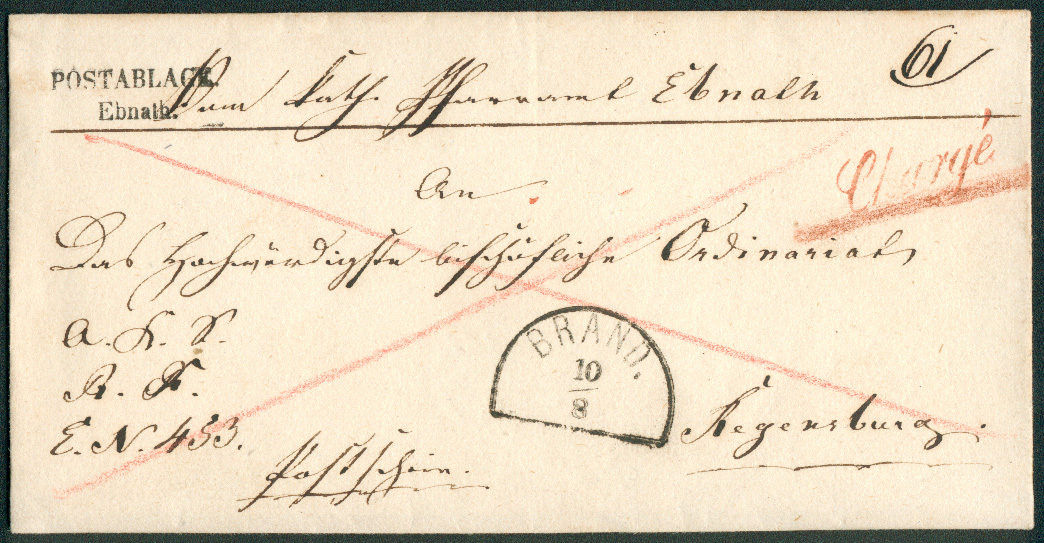 POSTABLAGE.
Ebnath.
Vom kath. Pfarramt Ebnath
61
Chargé
An
Das Hochwürdigste bischöfliche Ordinariat
BRAND.
10
8
R. S.
E. N. 453.
Regensburg.
Postschein.